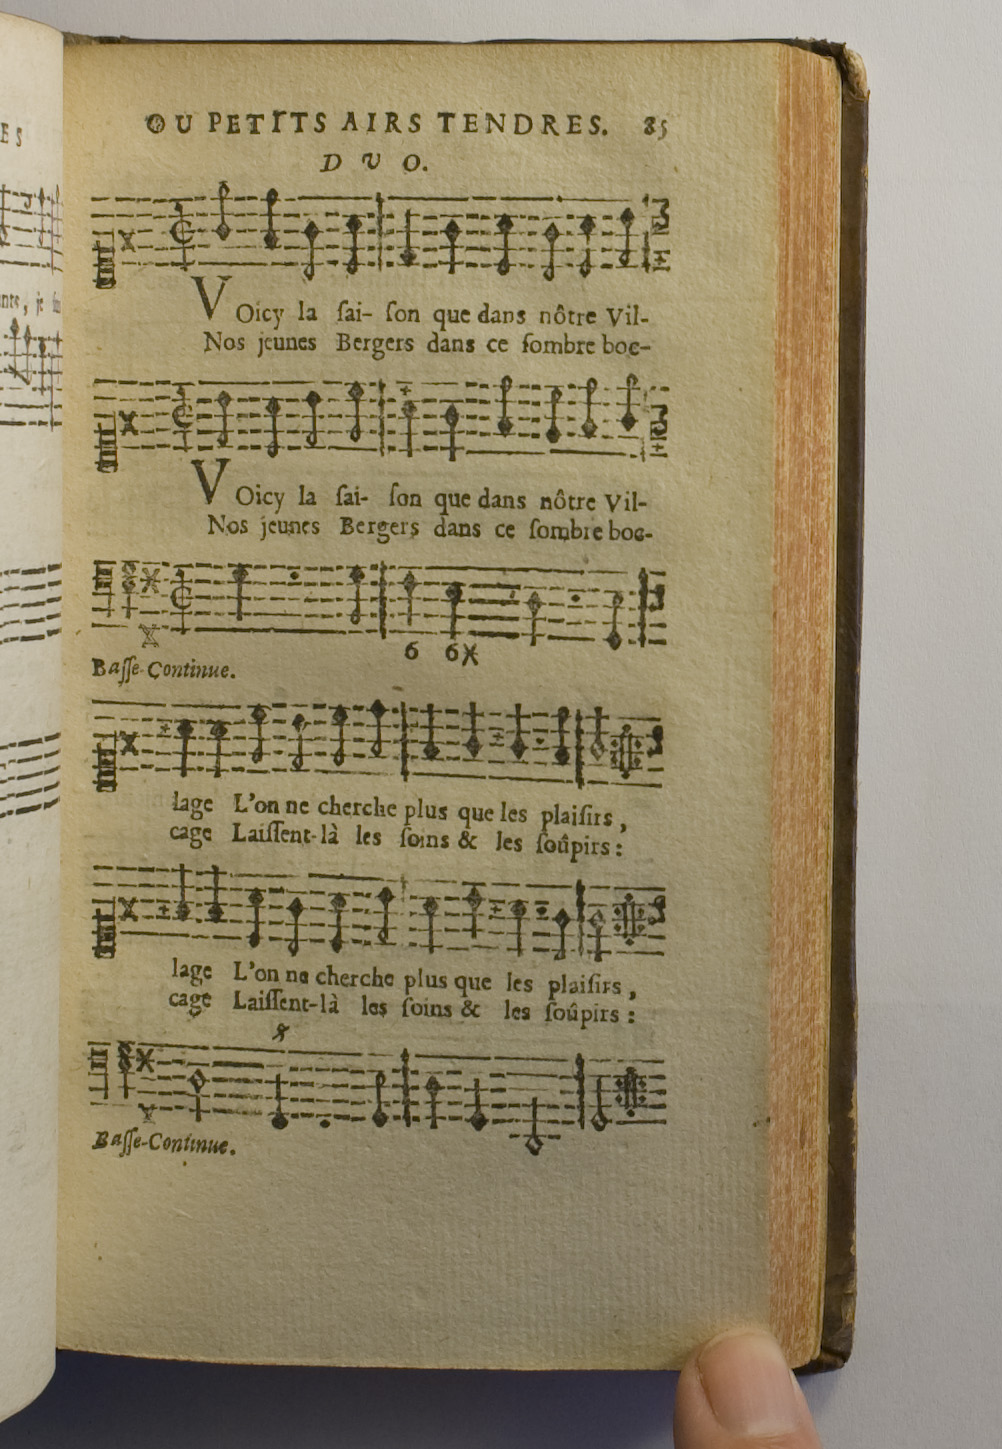 OU PETITS AIRS TENDRES. 85
DVO.
VOicy la ſai- ſon que dans nôtre Vil-
Nos jeunes Bergers dans ce ſombre boc-
VOicy la ſai- ſon que dans nôtre Vil-
Nos jeunes Bergers dans ce ſombre boc-
6 6
Baſſe-Continue.
lage L'on ne cherche plus que les plaiſirs,
cage Laiſſent-là les ſoins & les ſoûpirs:
lage L'on ne cherche plus que les plaiſirs,
cage Laiſſent-là les ſoins & les ſoûpirs:
Baſſe-Continue.